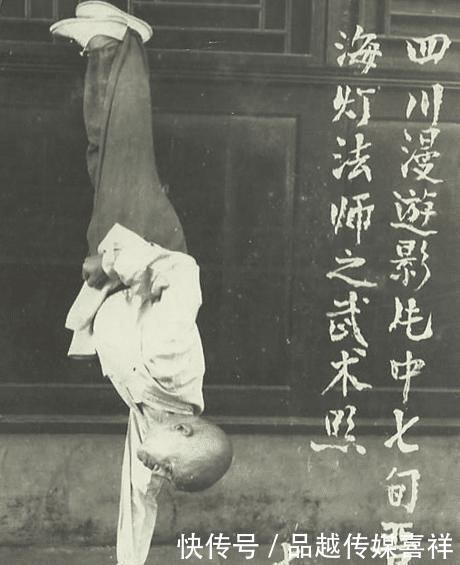 四川漫遊影片中七旬
海灯法师之武术照
快传号/品越传媒喜祥